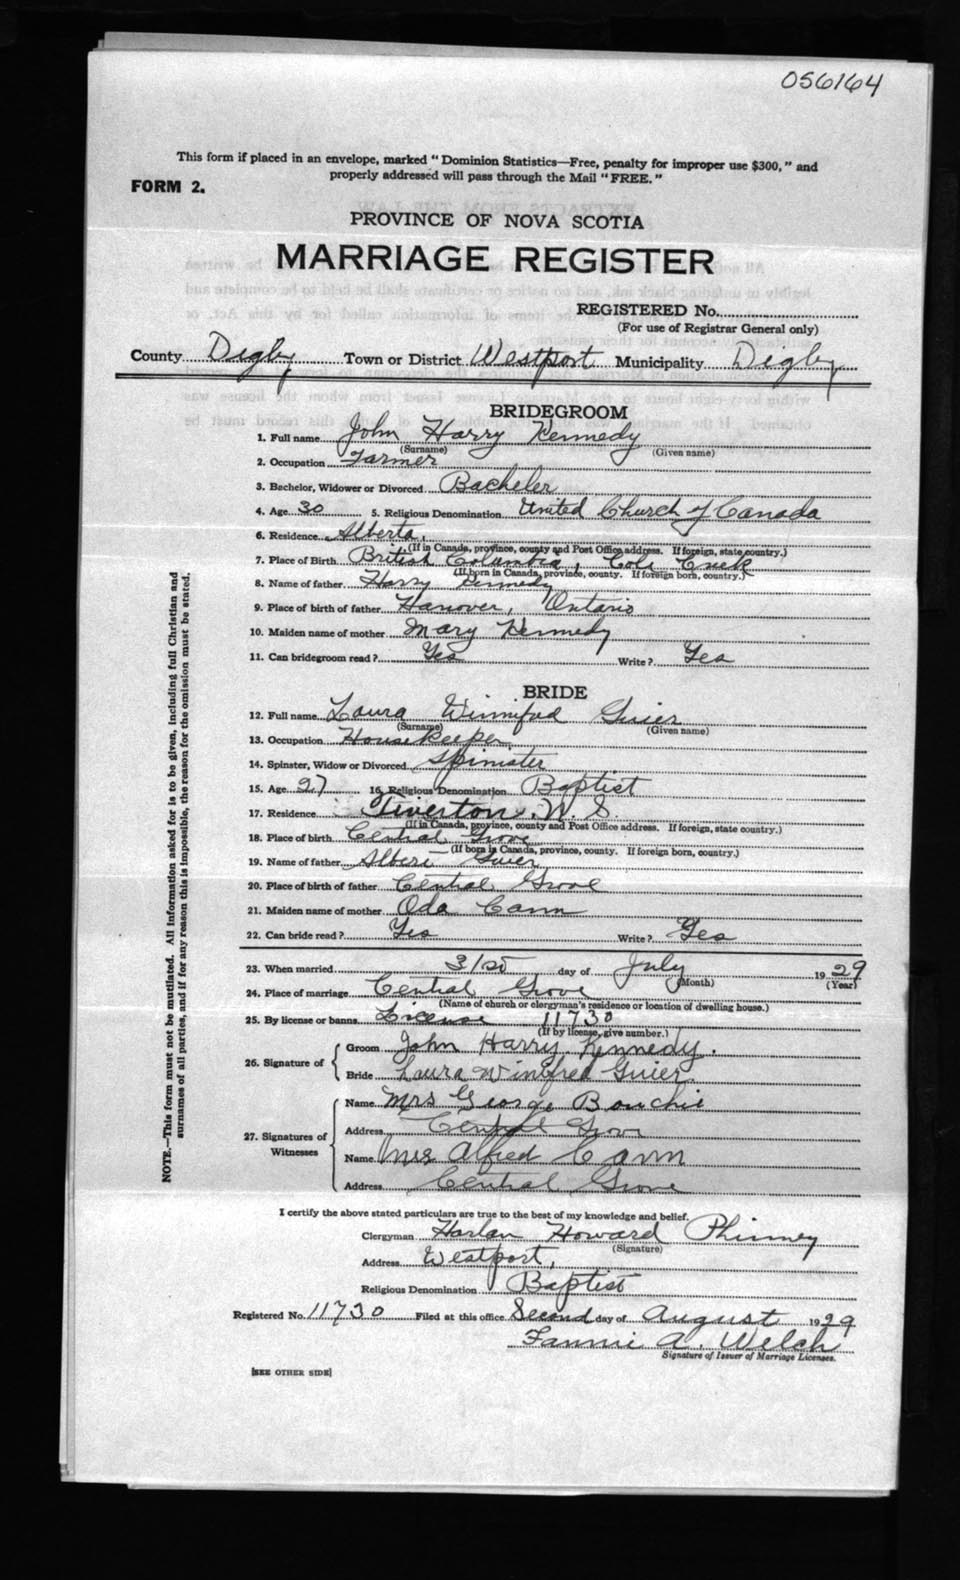 056164
This form if placed in an envelope, marked "Dominion Statistics—Free, penalty for improper use $300," and
properly addressed will pass through the Mail "FREE."
FORM 2.
PROVINCE OF NOVA SCOTIA
MARRIAGE REGISTER
REGISTERED No.
(For use of Registrar General only)
County Digby Town or District Westport Municipality Digby
BRIDEGROOM
1. Full name John Harry Kennedy
(Surname) (Given name)
2. Occupation Farmer
3. Bachelor, Widower or Divorced Bacheler
4. Age 30 5. Religious Denomination United Church of Canada
6. Residence Alberta,
(If in Canada, province, county and Post Office address. If foreign, state country.)
7. Place of Birth British Columbia, Cole Creek
(If born in Canada, province, county. If foreign born, country.)
8. Name of father Harry Kennedy
9. Place of birth of father Hanover, Ontario
10. Maiden name of mother Mary Kennedy
11. Can bridegroom read? Yes Write? Yes
BRIDE
12. Full name Laura Winnifred Guier
(Surname) (Given name)
13. Occupation Housekeeper
14. Spinster, Widow or Divorced Spinster
15. Age 27 16. Religious Denomination Baptist
17. Residence Tiverton. N. S.
(If in Canada, province, county and Post Office address. If foreign, state country.)
18. Place of birth Central Grove
(If born in Canada, province, county. If foreign born, country.)
19. Name of father Albert Guier
20. Place of birth of father Central Grove
21. Maiden name of mother Oda Cann
22. Can bride read? Yes Write? Yes
23. When married 31st day of July 1929
(Month) (Year)
24. Place of marriage Central Grove
(Name of church or clergyman's residence or location of dwelling house.)
25. By license or banns License 11730
(If by license, give number.)
26. Signature of
Groom John Harry Kennedy.
Bride Laura Winifred Guier
27. Signatures of Witnesses
Name Mrs George Bouchie
Address Central Grove
Name Mrs Alfred Cann
Address Central Grove
I certify the above stated particulars are true to the best of my knowledge and belief.
Clergyman Harlan Howard Phinney
(Signature)
Address Westport,
Religious Denomination Baptist
Registered No. 11730 Filed at this office Second day of August 1929
Fannie A. Welch
Signature of Issuer of Marriage Licenses.
[SEE OTHER SIDE]
NOTE.—This form must not be mutilated. All information asked for is to be given, including full Christian and
surnames of all parties, and if for any reason this is impossible, the reason for the omission must be stated.